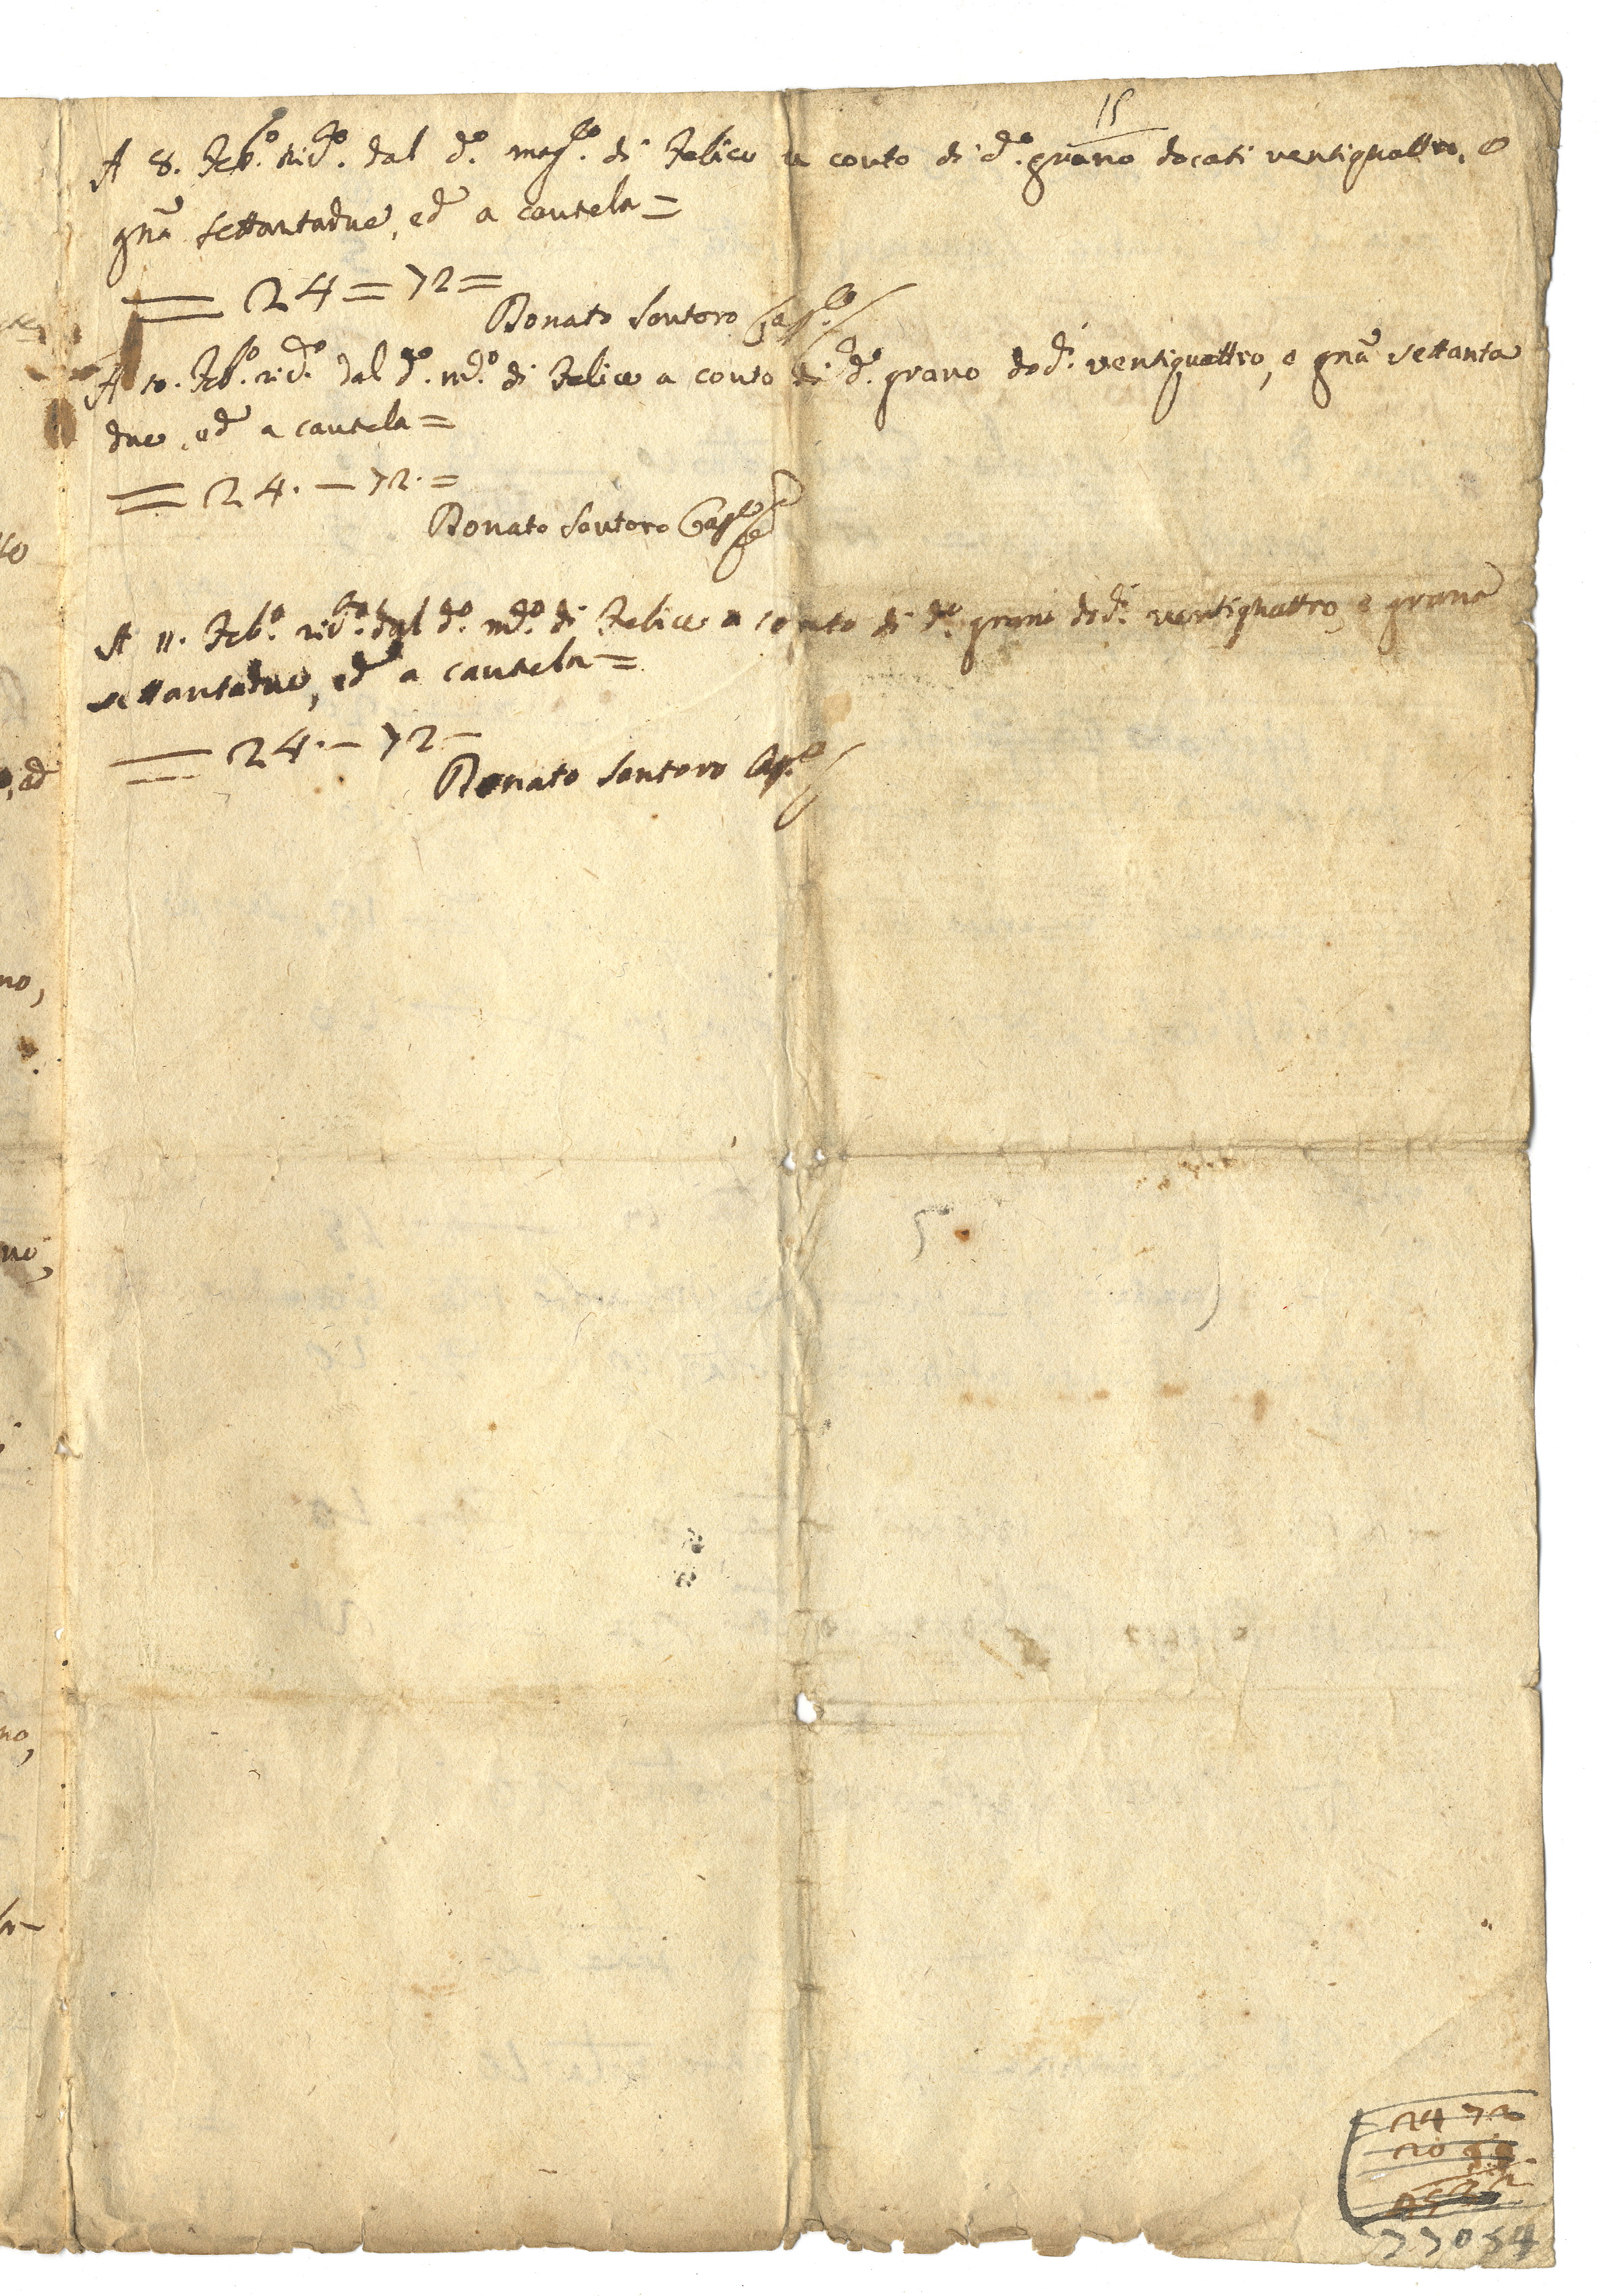 15
A 8. Feb.º rić.º dal d.º mag.co di Felice a conto di d.º grano docati ventiquattro, e
gnã settantadue, ed a cautela =
= 24 = 72 =
Donato Santoro Cass.ro
A 10. Feb.º ric.º dal d.º md.º di Felice a conto di d.º grano dod.i ventiquattro, e gnã settanta
due, ed a cautela =
= 24. – 72. =
Donato Santoro Cass.re
A 11. Feb.º ric.º dal d.º md.º di Felice a conto di d.º grano dod.i ventiquattro, e grana
settantadue, ed a cautela =
= 24. – 72 –
Donato Santoro Cass.ro
no,
no,
no,
24 72